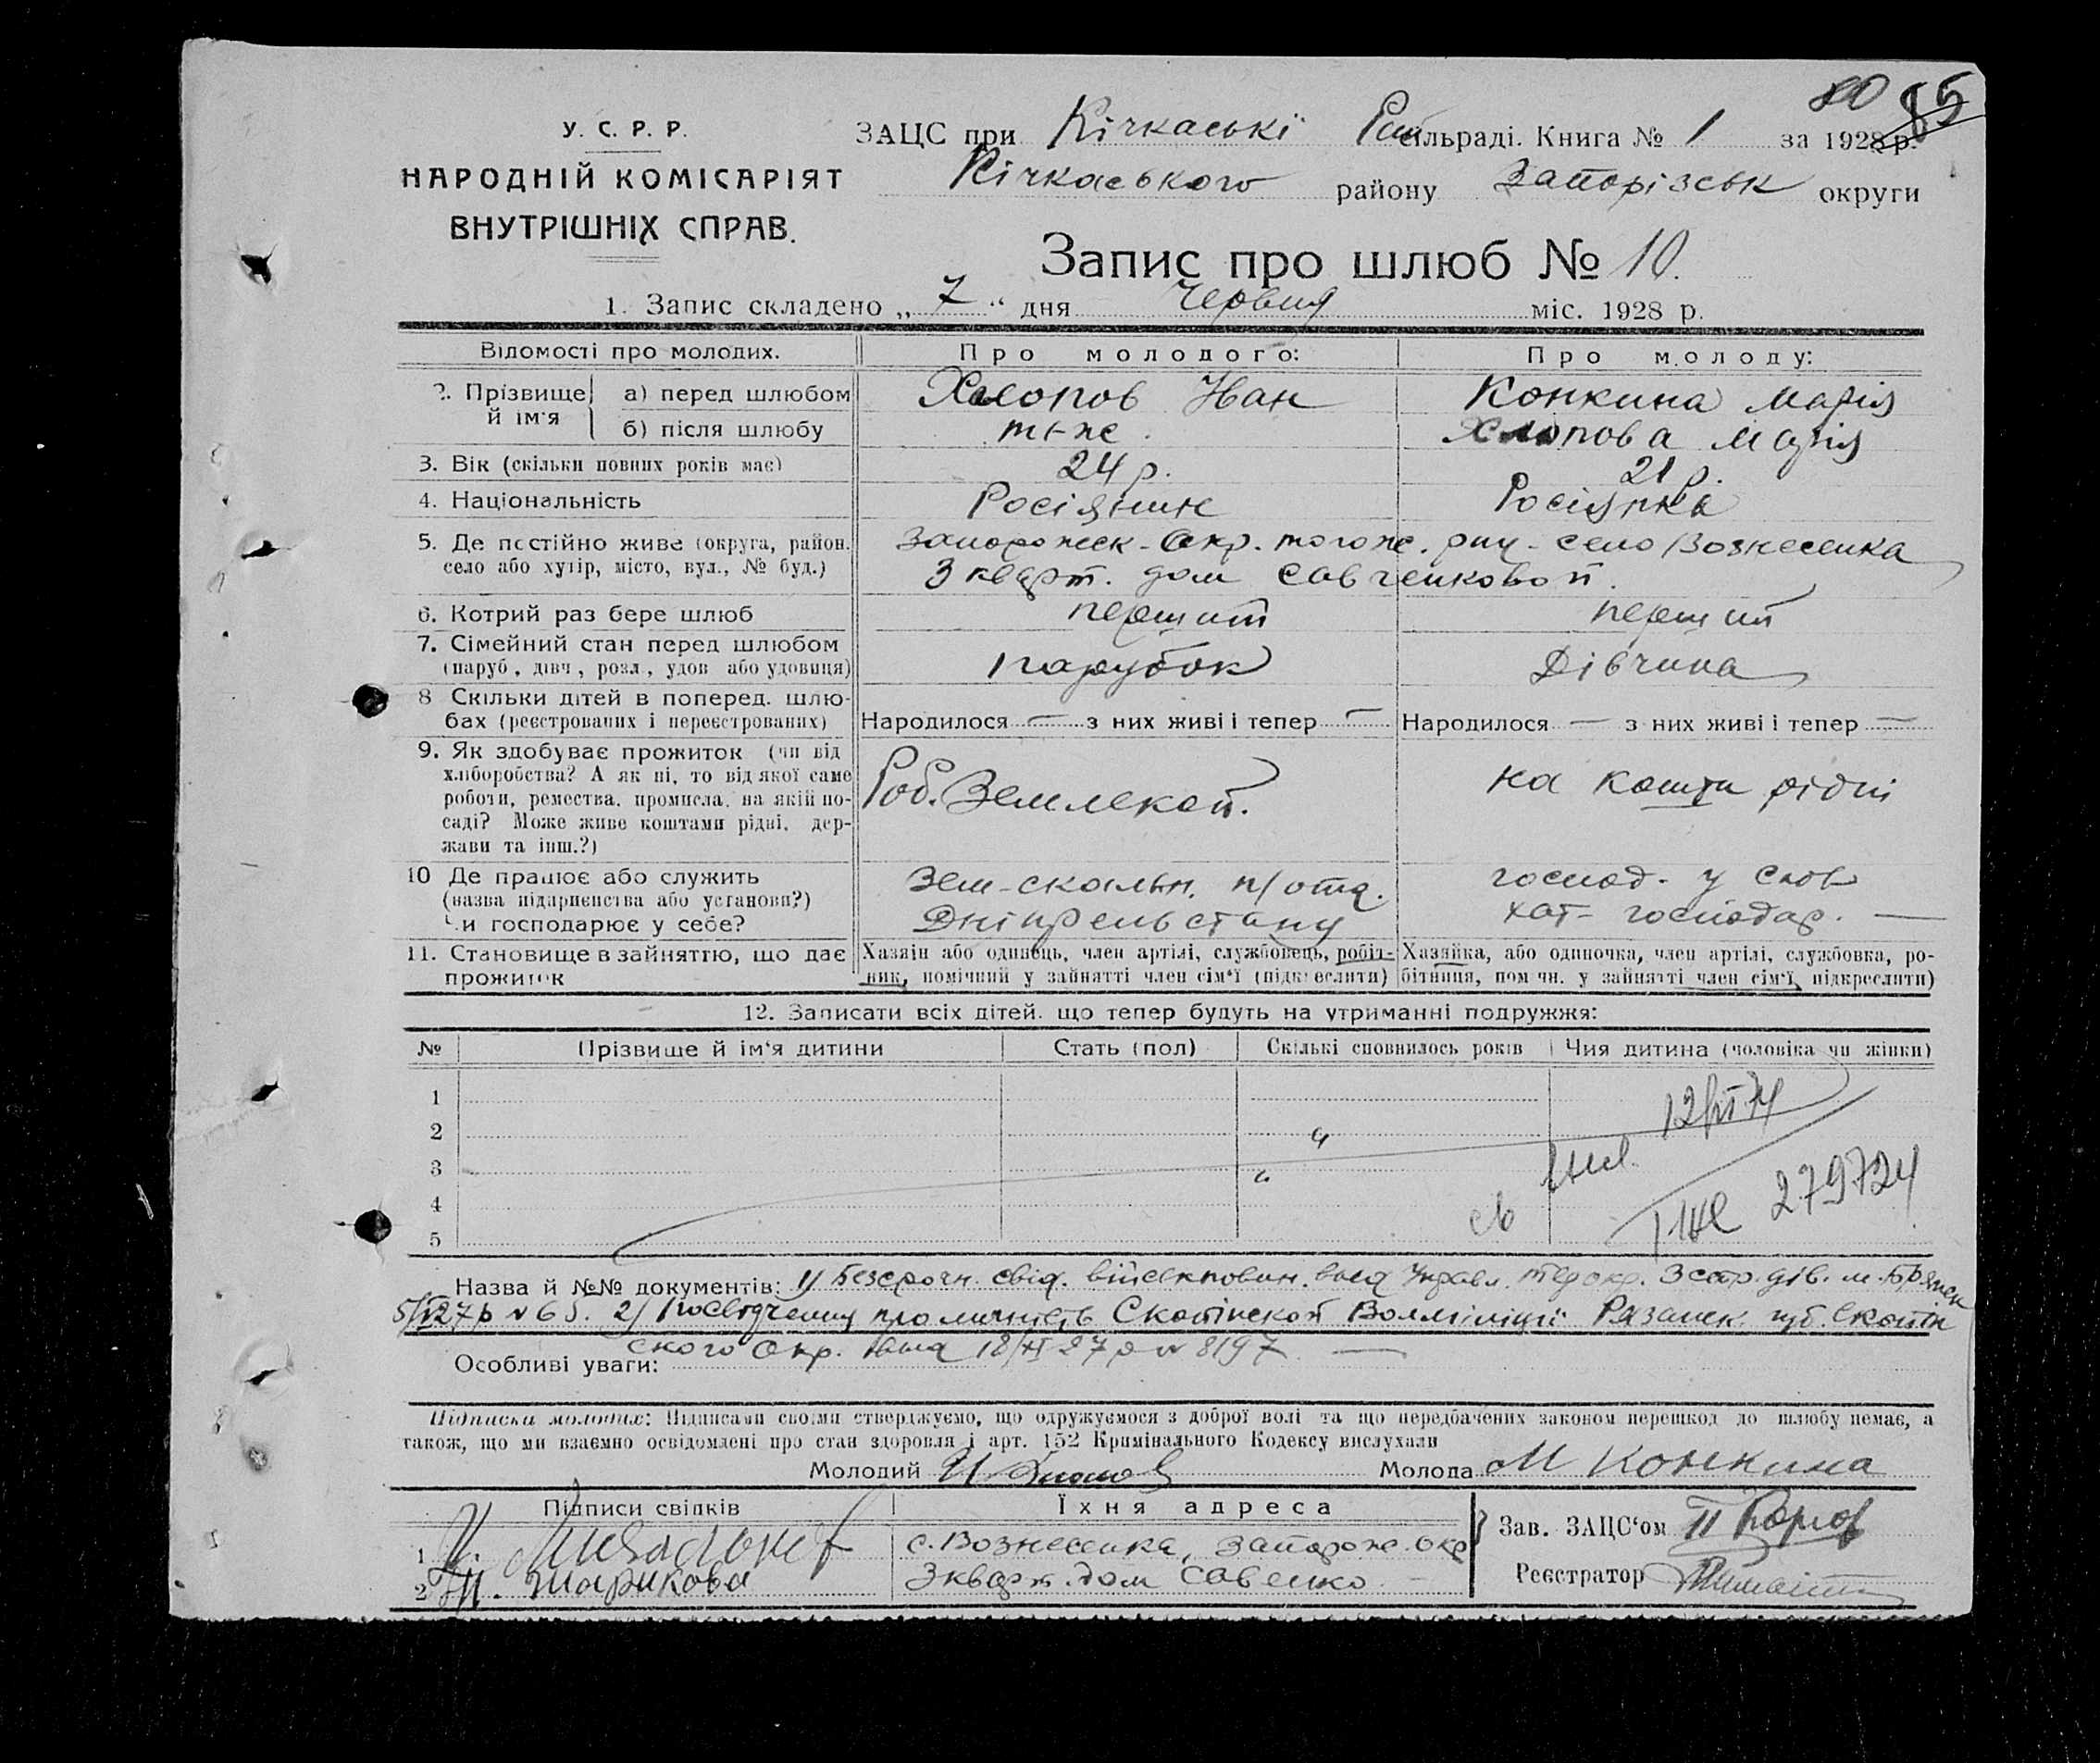 80 85
У. С. Р. Р.
НАРОДНІЙ КОМІСАРІЯТ
ВНУТРІШНІХ СПРАВ.
ЗАЦС при Кічкаські Рай сільраді. Книга № 1 за 1928 р.
Кічкаського району Запорізськ округи
Запис про шлюб № 10.
1. Запис складено „ 7 “ дня червня міс. 1928 р.
Відомості про молодих. Про молодого: Про молоду:
2. Прізвище й ім'я а) перед шлюбом Хлопов Іван Конкина Марія
б) після шлюбу т-же. Хлопова Марія
3. Вік (скільки повних років має) 24 р. 21 р.
4. Національність Росіянин Росіянка
5. Де постійно живе (округа, район. Запорожск-Окр. тогож. рич-село Вознесенка
село або хутір, місто, вул., № буд.) 3 кварт. дом Савченковой.
6. Котрий раз бере шлюб перший перший
7. Сімейний стан перед шлюбом парубок Дівчина
(паруб, дівч, розл, удов або удовиця)
8 Скільки дітей в поперед. шлю-
бах (реєстрованих і нереєстрованих) Народилося — з них живі і тепер — Народилося — з них живі і тепер —
9. Як здобуває прожиток (чи від
хліборобства? А як ні, то від якої саме Роб. Землекоп. на кошти рідні
роботи, ремества, промисла, на якій по-
саді? Може живе коштами рідні, дер-
жави та інш.?)
10 Де працює або служить Зем-скальн. п/отд. господ. у
(назва підприємства або установи?) Дніпрельстану хат-господар. —
Чи господарює у себе?
11. Становище в зайняттю, що дає Хазяїн або одинець, член артілі, службовець, робіт- Хазяйка, або одиночка, член артілі, службовка, ро-
прожиток ник, помічний у зайнятті член сім'ї (підкреслити) бітниця, помічн. у зайнятті член сім'ї, підкреслити)
12. Записати всіх дітей, що тепер будуть на утриманні подружжя:
№ Прізвище й ім'я дитини Стать (пол) Скількі сповнилось років Чия дитина (чоловіка чи жінки)
1
2
3
4
5
279724
Назва й №№ документів: 1) Безсрочн. свід. військповин. вид Управл. 3 стр. див. м. Брянск
27 р № 65. 2) Посвідчення про личність Скопінской Волміліції Рязанск. губ. Скопін
ского Окр. вид 18/XI 27 р № 8197 —
Особливі уваги:
Підписки молодих: Підписами своїми стверджуємо, що одружуємося з доброї волі та що передбачених законом перешкод до шлюбу немає, а
також, що ми взаємно освідомлені про стан здоровля і арт. 152 Кримінального Кодексу вислухали
Молодий Молода М Конкина
Підписи свідків Їхня адреса
1 с. Вознесенка, Запорож. окр Зав. ЗАЦС'ом
2 Н. Шарикова 3 кварт. дом Савенко — Реєстратор